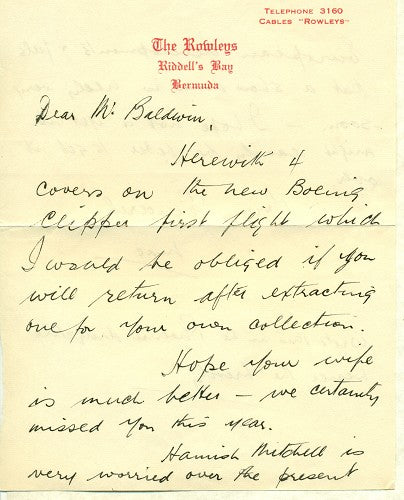 TELEPHONE 3160
CABLES "ROWLEYS"
The Rowleys
Riddell's Bay
Bermuda
Dear Mr Baldwin,
Herewith 4
covers on the new Boeing
Clipper first flight which
I would be obliged if you
will return after extracting
one for your own collection.
Hope your wife
is much better — we certainly
missed you this year.
Hamish Mitchell is
very worried over the present